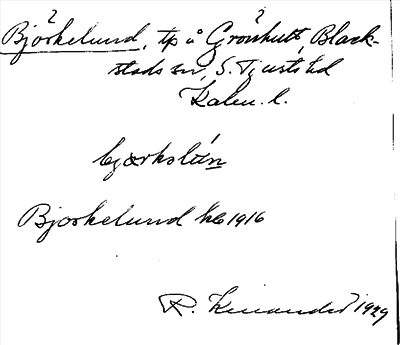 Björkelund, tp å Grönhult, Black-
stads sn, S. Tjusts hd
Kalm. l.
bjærkslun
Bjorkelund hb 1916
R. 1929